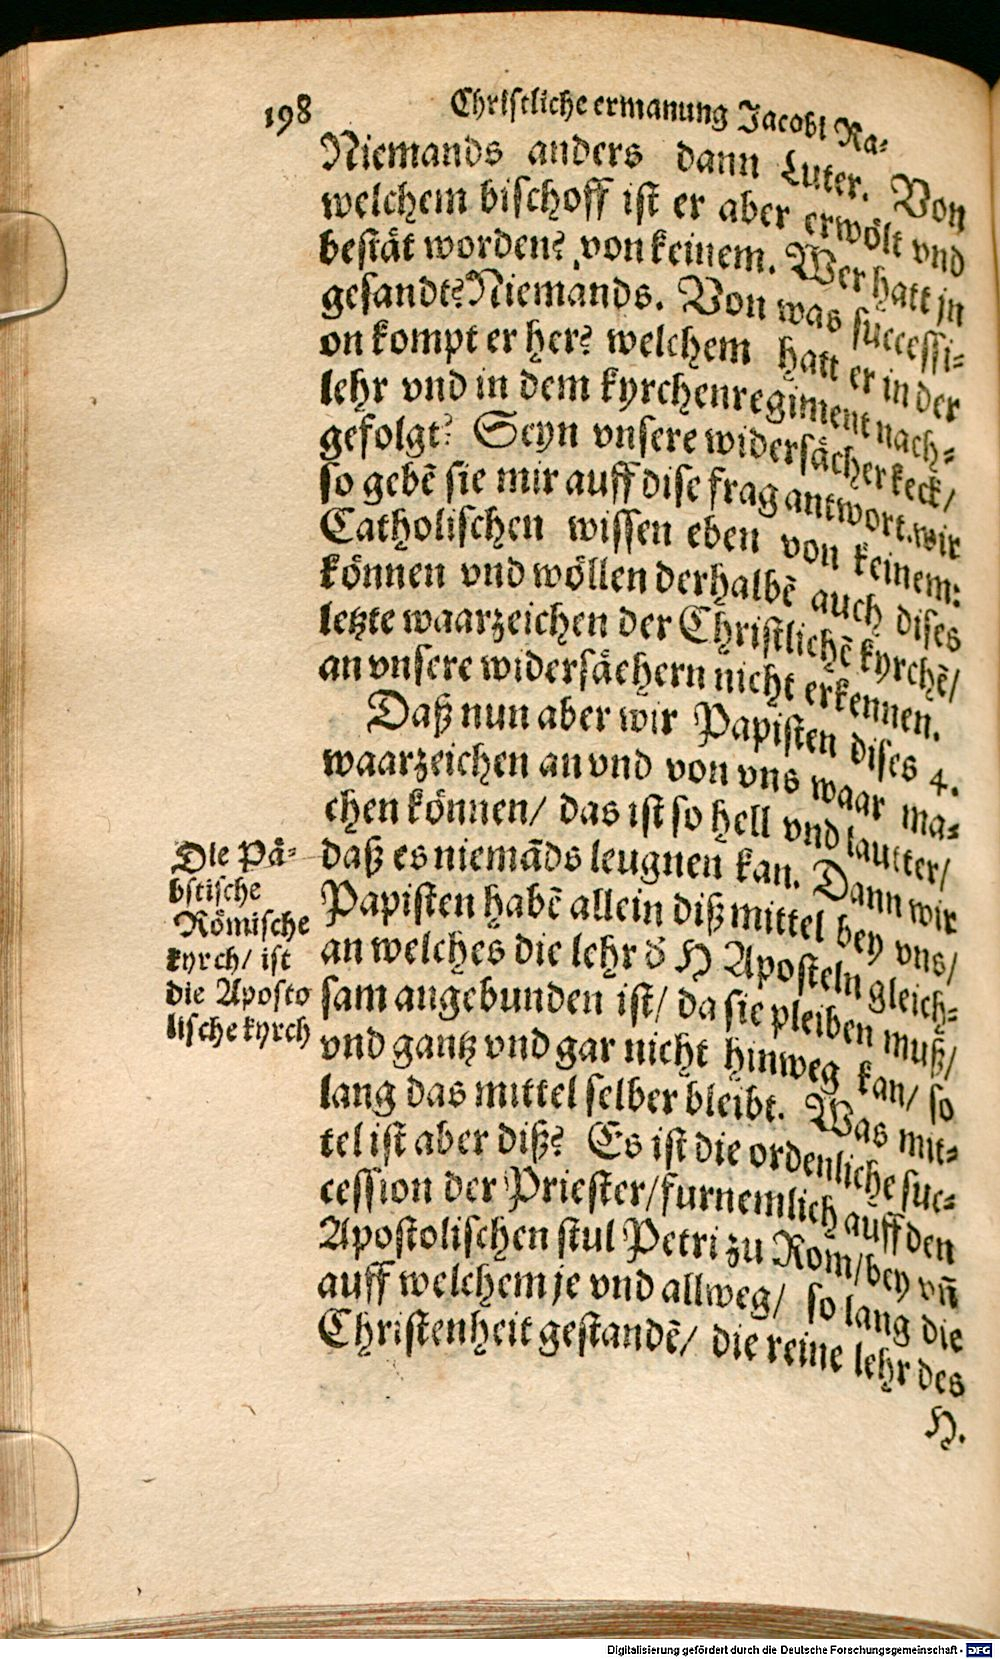 198 Christliche ermanung Jacobi Ra-
Niemands anders dann Luter. Von
welchem bischoff ist er aber erwölt vnd
bestät worden? von keinem. Wer hatt jn
gesandt? Niemands. Von was successi-
on kompt er her? welchem hatt er in der
lehr vnd in dem kyrchenregiment nach-
gefolgt? Seyn vnsere widersächer keck/
so gebē sie mir auff dise frag antwort. wir
Catholischen wissen eben von keinem:
können vnd wöllen derhalbē auch dises
letzte waarzeichen der Christlichē kyrchē/
an vnsere widersächern nicht erkennen.
Daß nun aber wir Papisten dises 4.
waarzeichen an vnd von vns waar ma-
chen können/ das ist so hell vnd lautter/
daß es niemāds leugnen kan. Dann wir
Papisten habē allein diß mittel bey vns/
an welches die lehr d̕ H Aposteln gleich-
sam angebunden ist/ da sie pleiben muß/
vnd gantz vnd gar nicht hinweg kan/ so
lang das mittel selber bleibt. Was mit-
tel ist aber diß? Es ist die ordenliche suc-
cession der Priester/ furnemlich auff den
Apostolischen stul Petri zu Rom/ bey vñ
auff welchem je vnd allweg/ so lang die
Christenheit gestandē/ die reine lehr des
H.
Die Pä-
bstische
Römische
kyrch/ ist
die Aposto
lische kyrch
Digitalisierung gefördert durch die Deutsche Forschungsgemeinschaft - DFG